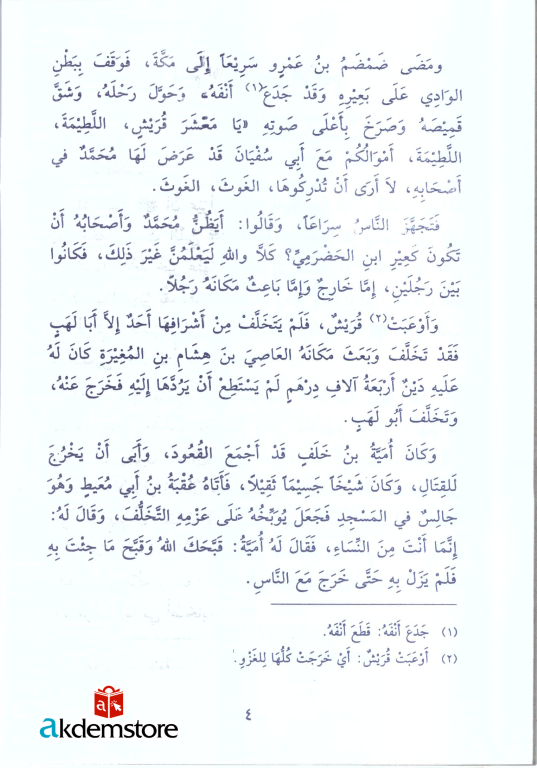 ومَضَى ضَمْضَمُ بنُ عَمْرٍو سَرِيْعَاً إِلَى مَكَّةَ، فَوَقَفَ بِبَطْنِ
الوَادِي عَلَى بَعِيْرِهِ وَقَدْ جَدَعَ(١) أَنْفَهُ، وَحَوَّلَ رَحْلَهُ، وَشَقَّ
قَمِيْصَهُ وَصَرَخَ بِأَعْلَى صَوتِهِ «يَا مَعْشَرَ قُرَيْشٍ، اللَّطِيْمَةَ،
اللَّطِيْمَةَ، أَمْوَالُكُمْ مَعَ أَبِي سُفْيَانَ قَدْ عَرَضَ لَهَا مُحَمَّدٌ في
أَصْحَابِهِ، لاَ أَرَى أَنْ تُدْرِكُوهَا، الغَوثَ، الغَوثَ.
فَتَجَهَّزَ النَّاسُ سِرَاعَاً، وَقَالُوا: أَيَظُنُّ مُحَمَّدٌ وَأَصْحَابُهُ أَنْ
تَكُونَ كَعِيْرِ ابنِ الحَضْرَمِيِّ؟ كَلاَّ واللهِ لَيَعْلَمُنَّ غَيْرَ ذَلِكَ، فَكَانُوا
بَيْنَ رَجُلَيْنِ، إِمَّا خَارِجٌ وَإِمَّا بَاعِثٌ مَكَانَهُ رَجُلاً.
وَأَوْعَبَتْ(٢) قُرَيْشٌ، فَلَمْ يَتَخَلَّفْ مِنْ أَشْرَافِهَا أَحَدٌ إِلاَّ أَبَا لَهَبٍ
فَقَدْ تَخَلَّفَ وَبَعَثَ مَكَانَهُ العَاصِيَ بنَ هِشَامِ بنِ المُغِيْرَةِ كَانَ لَهُ
عَلَيهِ دَيْنٌ أَرْبَعَةُ آلافِ دِرْهَمٍ لَمْ يَسْتَطِعْ أَنْ يَرُدَّهَا إِلَيْهِ فَخَرَجَ عَنْهُ،
وَتَخَلَّفَ أَبُو لَهَبٍ.
وَكَانَ أُمَيَّةُ بنُ خَلَفٍ قَدْ أَجْمَعَ القُعُودَ، وَأَبَى أَنْ يَخْرُجَ
لَلقِتَالِ، وَكَانَ شَيْخَاً جَسِيْمَاً ثَقِيْلاً، فَأَتَاهُ عُقْبَةُ بنُ أَبِي مُعَيطٍ وَهُوَ
جَالِسٌ في المَسْجِدِ فَجَعَلَ يُوَبِّخُهُ عَلَى عَزْمِهِ التَّخَلُّفَ، وَقَالَ لَهُ:
إِنَّمَا أَنْتَ مِنَ النِّسَاءِ، فَقَالَ لَهُ أُمَيَّةُ: قَبَّحَكَ اللهُ وَقَبَّحَ مَا جِئْتَ بِهِ
فَلَمْ يَزَلْ بِهِ حَتَّى خَرَجَ مَعَ النَّاسِ.
(١) جَدَعَ أَنْفَهُ: قَطَعَ أَنْفَهُ.
(٢) أَوْعَبَتْ قُرَيْشٌ: أَيْ خَرَجَتْ كُلُّهَا لِلغَزْوِ.
٤
akdemstore